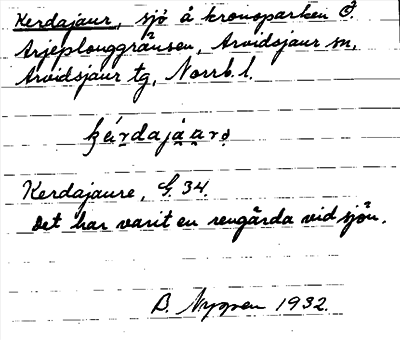 Kerdajaur, sjö å kronoparken Ö.
Arjeplouggränsen, Arvidsjaur sn,
Arvidsjaur tg, Norrb. l.
Kerdajaure, G. 34.
Det har varit en rengärda vid sjön.
B. Nyman 1932.